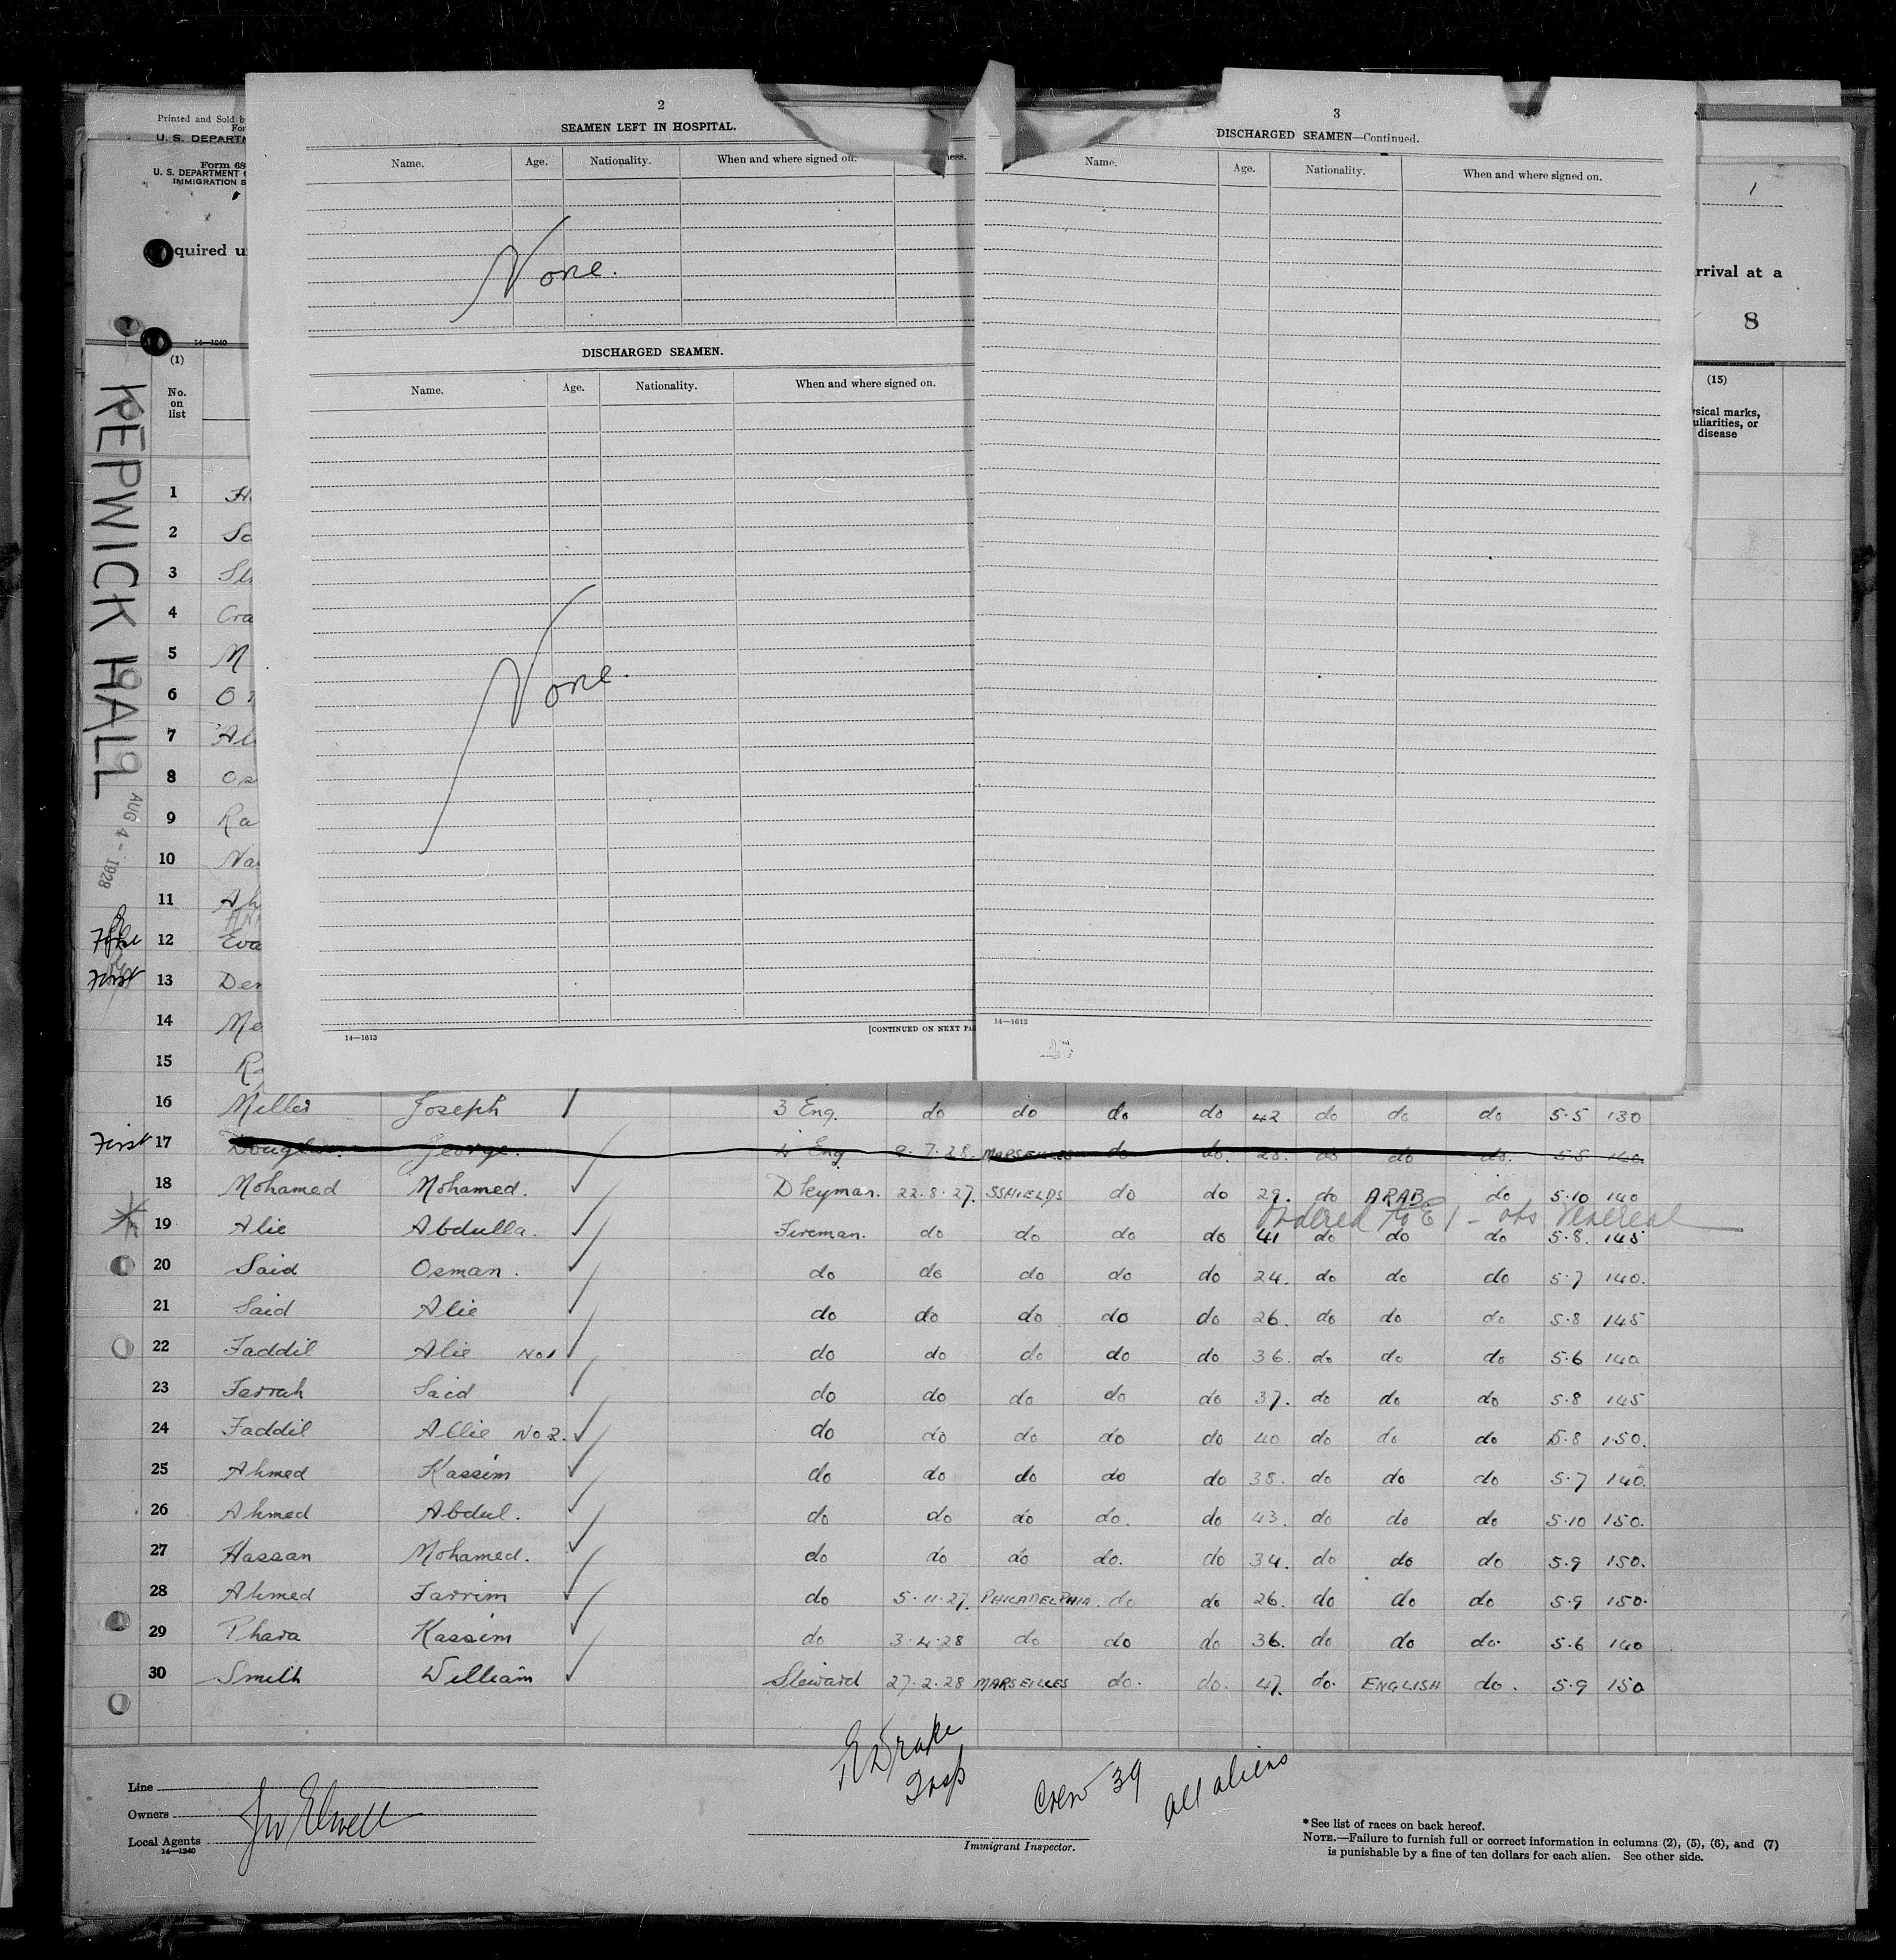 2
SEAMEN LEFT IN HOSPITAL.
Name. Age. Nationality. When and where signed on. ness.
None.
DISCHARGED SEAMEN.
Name. Age. Nationality. When and where signed on.
None.
14—1613
[CONTINUED ON NEXT PA
3
DISCHARGED SEAMEN—Continued.
Name. Age. Nationality. When and where signed on.
14—1613
Printed and Sold b
For
U. S. DEPARTM
Form 68
U. S. DEPARTMENT
IMMIGRATION S
quired u
14—1240
1
rrival at a
8
(1)
No. on list
(15)
ysical marks, uliarities, or disease
REPWICK HALL
AUG 4 - 1928
1
2 Sc
3
4 Cra
5 M
6 O
7
8 Os
9 Ra
10
11 Ah
12 Eva
First 13 Der
14
15
16 Miller Joseph 3 Eng. do do do do 42 do do do 5.5 130
First 17 Douglas. George. 4 Eng 9.7.28 MARSEILLES do do. 28. do do do. 5.5 140.
18 Mohamed Mohamed. Dkeyman. 22.8.27. SSHIELDS do do 29. do ARAB do 5.10 140
Ordered to E I - obs Venereal
19 Alie Abdulla. Fireman. do do do do 41 do do do 5.8. 145
20 Said Osman. do do do do do 24. do do do 5.7 140.
21 Said Alie do do do do do 26. do do do 5.8 145
22 Faddil Alie No1 do do do do do 36. do do do 5.6 140
23 Farrah Said do do do do do 37. do do do 5.8 145
24 Faddil Allie No 2. do do do do do 40 do do do 5.8 150.
25 Ahmed Kassim do do do do do 38. do do do 5.7 140.
26 Ahmed Abdul. do do do do. do 43. do do do 5.10 150.
27 Hassan Mohamed. do do do do. do 34. do do do 5.9 150.
28 Ahmed Farrim do 5.11.27. PHILADELPHIA. do do 26. do do do 5.9 150.
29 Phara Kassim do 3.4.28 do do do 36. do do do. 5.6 140
30 Smith William Steward 27.2.28 MARSEILLES do. do. 47. do. ENGLISH do. 5.9 150
Drake
Insp
Crew 39
all aliens
Line
Owners
Local Agents
Jno Elwell
14—1240
Immigrant Inspector.
*See list of races on back hereof.
NOTE.—Failure to furnish full or correct information in columns (2), (5), (6), and (7)
is punishable by a fine of ten dollars for each alien. See other side.